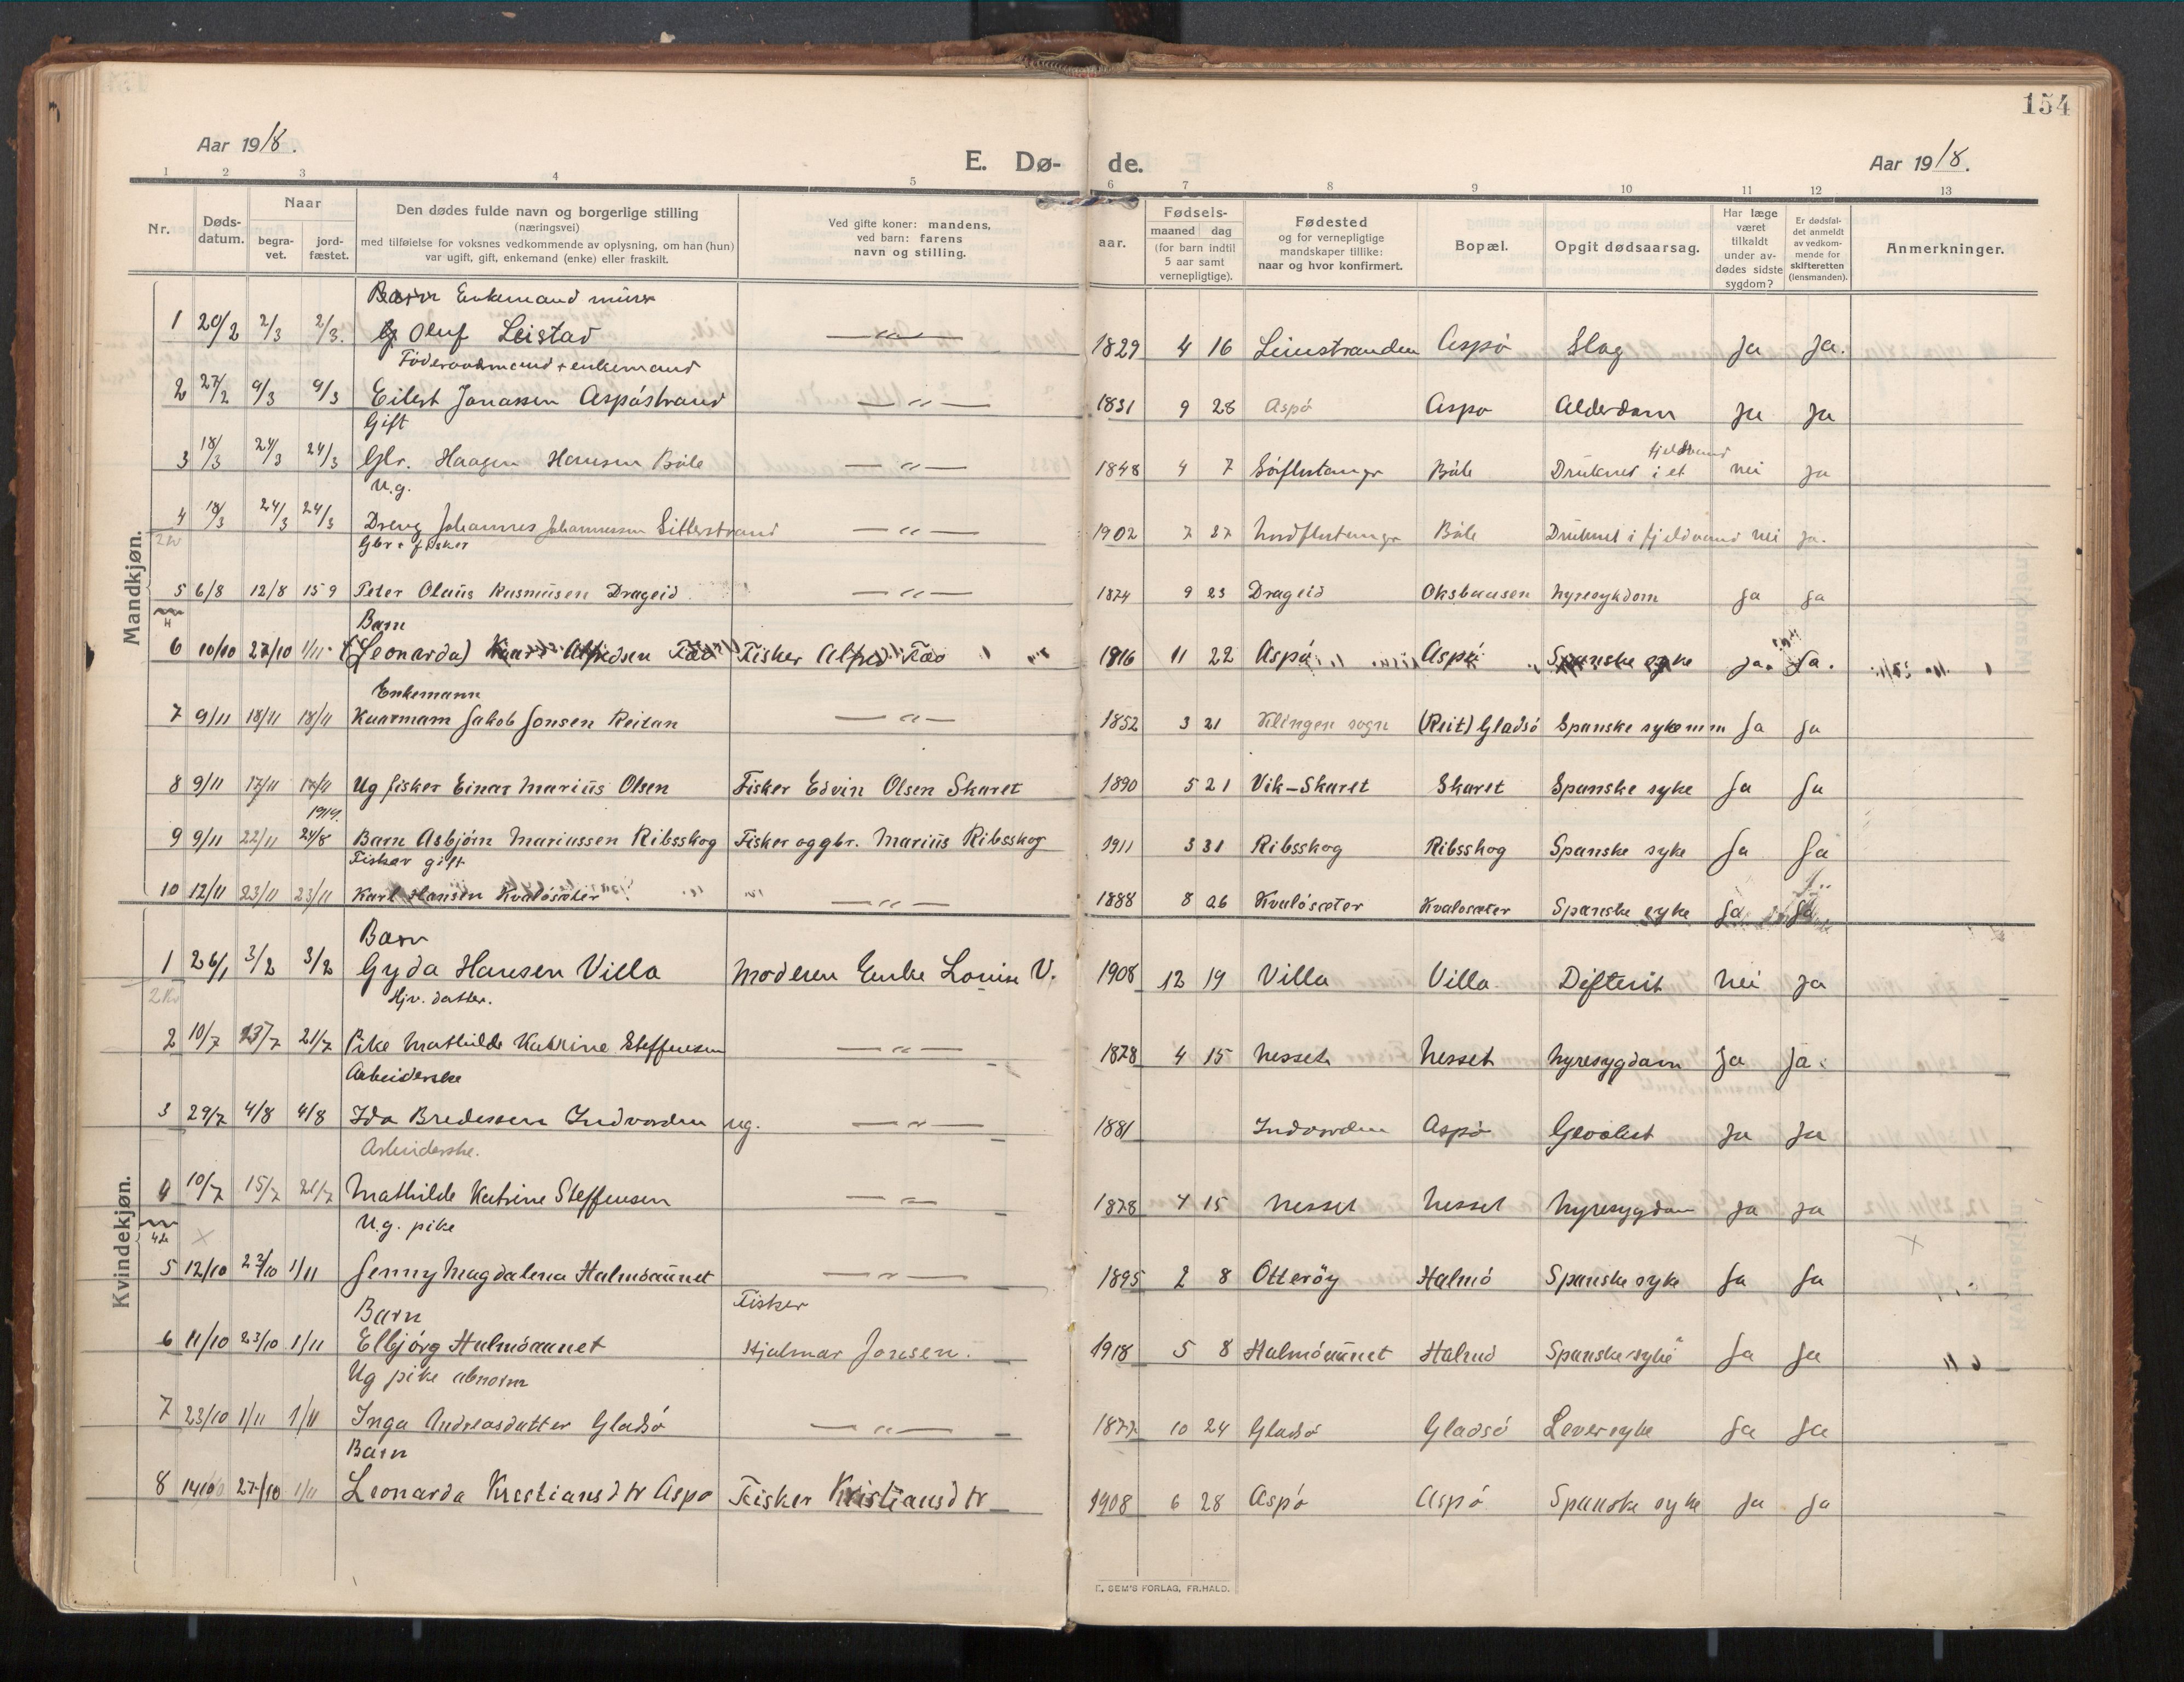 154
Aar 1918.
E. Dø- de.
Aar 1918.
1 2 3 4 5 6 7 8 9 10 11 12 13
Nr. Døds-datum. Naar begra-vet. jord-fæstet. Den dødes fulde navn og borgerlige stilling (næringsvei) med tilføielse for voksnes vedkommende av oplysning, om han (hun) var ugift, gift, enkemand (enke) eller fraskilt. Ved gifte koner: mandens, ved barn: farens navn og stilling. aar. Fødsels- maaned dag (for barn indtil 5 aar samt vernepligtige). Fødested og for vernepligtige mandskaper tillike: naar og hvor konfirmert. Bopæl. Opgit dødsaarsag. Har læge været tilkaldt under av-dødes sidste sygdom? Er dødsfal-det anmeldt av vedkom-mende for skifteretten (lensmanden). Anmerkninger.
Mandkjøn.
Enkemand
1 20/2 2/3 2/3. Oluf Leistad — " — 1829 4 16 Leinstranden Aspö Slag Ja Ja.
Föderaadmand + enkemand
2 27/2 9/3 9/3 Eilert Jonassen Aspöstrand — " — 1831 9 28 Aspö Aspö Alderdom Ja Ja
Gift
fjeldvand
3 18/3 24/3 24/3 Gbr. Haagen Hansen Böle — " — 1848 4 7 Böle Druknet i et nei Ja
U.g.
4 18/3 24/3 24/3 Dreng Johannes Johannessen Sitterstrand — " — 1902 7 27 Böle Druknet i fjeldvand nei Ja.
Gbr + fisker
5 6/8 12/8 15 9 Peter Olaüs Rasmüsen Drageid — " — 1874 9 23 Drageid Oksbaasen Nyresykdom Ja Ja
Barn
6 10/10 27/10 1/11 (Leonarda) Alfredsen Faö Fisker Alfred Faö 1916 11 22 Aspö Aspö Spanske syke Ja. Ja.
Enkemann
7 9/11 18/11 18/11 Kaarmam Jakob Jonsen Reitan — " — 1852 3 21 Klingen sogn (Reit) Gladsö Spanske sykemm Ja Ja
8 9/11 17/11 17/11 Ug fisker Einar Mariüs Olsen Fisker Edvin Olsen Skaret 1890 5 21 Vik-Skaret Skaret Spanske syke Ja Ja
1919.
9 9/11 22/11 24/8 Barn Asbjörn Mariussen Ribsskog Fisker og gbr. Mariüs Ribsskog 1911 3 31 Ribsskog Ribsskog Spanske syke Ja Ja
Fisker gift
10 12/11 23/11 23/11 Karl Hansen Kvalösæter — " — 1888 8 26 Kvalösæter Kvalosæter Spanske syke Ja Ja
Kvindekjøn.
Barn
1 26/1 3/2 3/2 Gyda Hansen Villa Moderen Enke Louise V. 1908 12 19 Villa Villa Difterit Nei Ja
Hjv. datter.
2 10/7 21/7 Pike Mathilde Katrine Steffensen — " — 1878 4 15 Nesset Nesset Nyresygdom Ja Ja.
Arbeiderske
3 29/7 4/8 4/8 Ida Bredesen Indvorden ug. — " — 1881 Indvorden Aspö Ja Ja
Arbeiderske.
4 10/7 15/7 21/7 Mathilde Katrine Steffensen — " — 1878 4 15 Nesset Nesset Nyresygdom Ja Ja
U.g. pike
5 12/10 23/10 1/11 Jenny Magdalena Halmöaünet — " — 1895 2 8 Otteröy Halmö Spanske syke Ja Ja
Barn Fisker
6 11/10 23/10 1/11 Elbjörg Halmöaunet Hjalmar Jonsen. 1918 5 8 Halmöaünet Halmö Spanske syke Ja Ja
Ug pike abnorm
7 23/10 1/11 1/11 Inga Andreasdatter Gladsö — " — 1877 10 24 Gladsö Gladsö Leversyke Ja Ja
Barn
8 14/10 27/10 1/11 Leonarda Krestiansdtr Aspö Fisker Kristiansdtr 1908 6 28 Aspö Aspö Spanske syke Ja Ja
E. SEM'S FORLAG, FR.HALD.